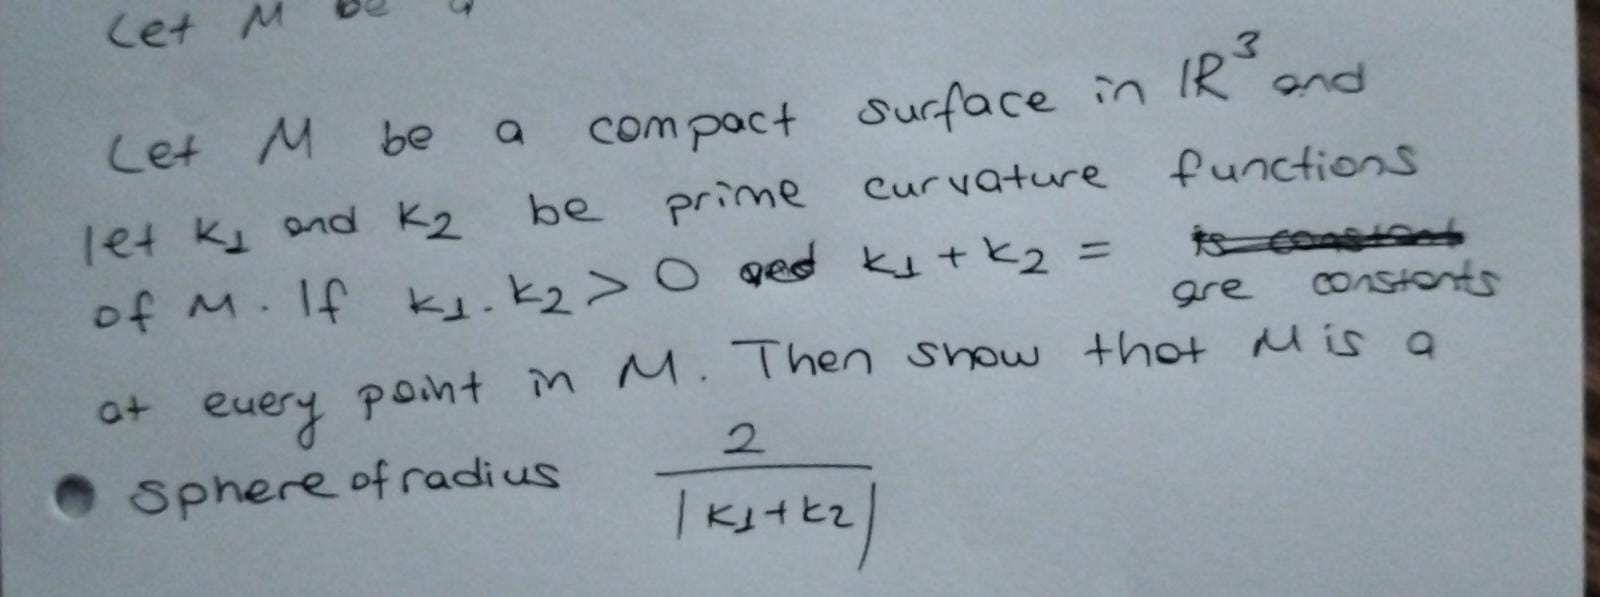 Let M be a
Let M be a compact surface in ℝ³ and
let k₁ and k₂ be prime curvature functions
of M. If k₁.k₂ > 0 and k₁ + k₂ = are constants
at every point in M. Then show that M is a
sphere of radius 2/|k₁+k₂|